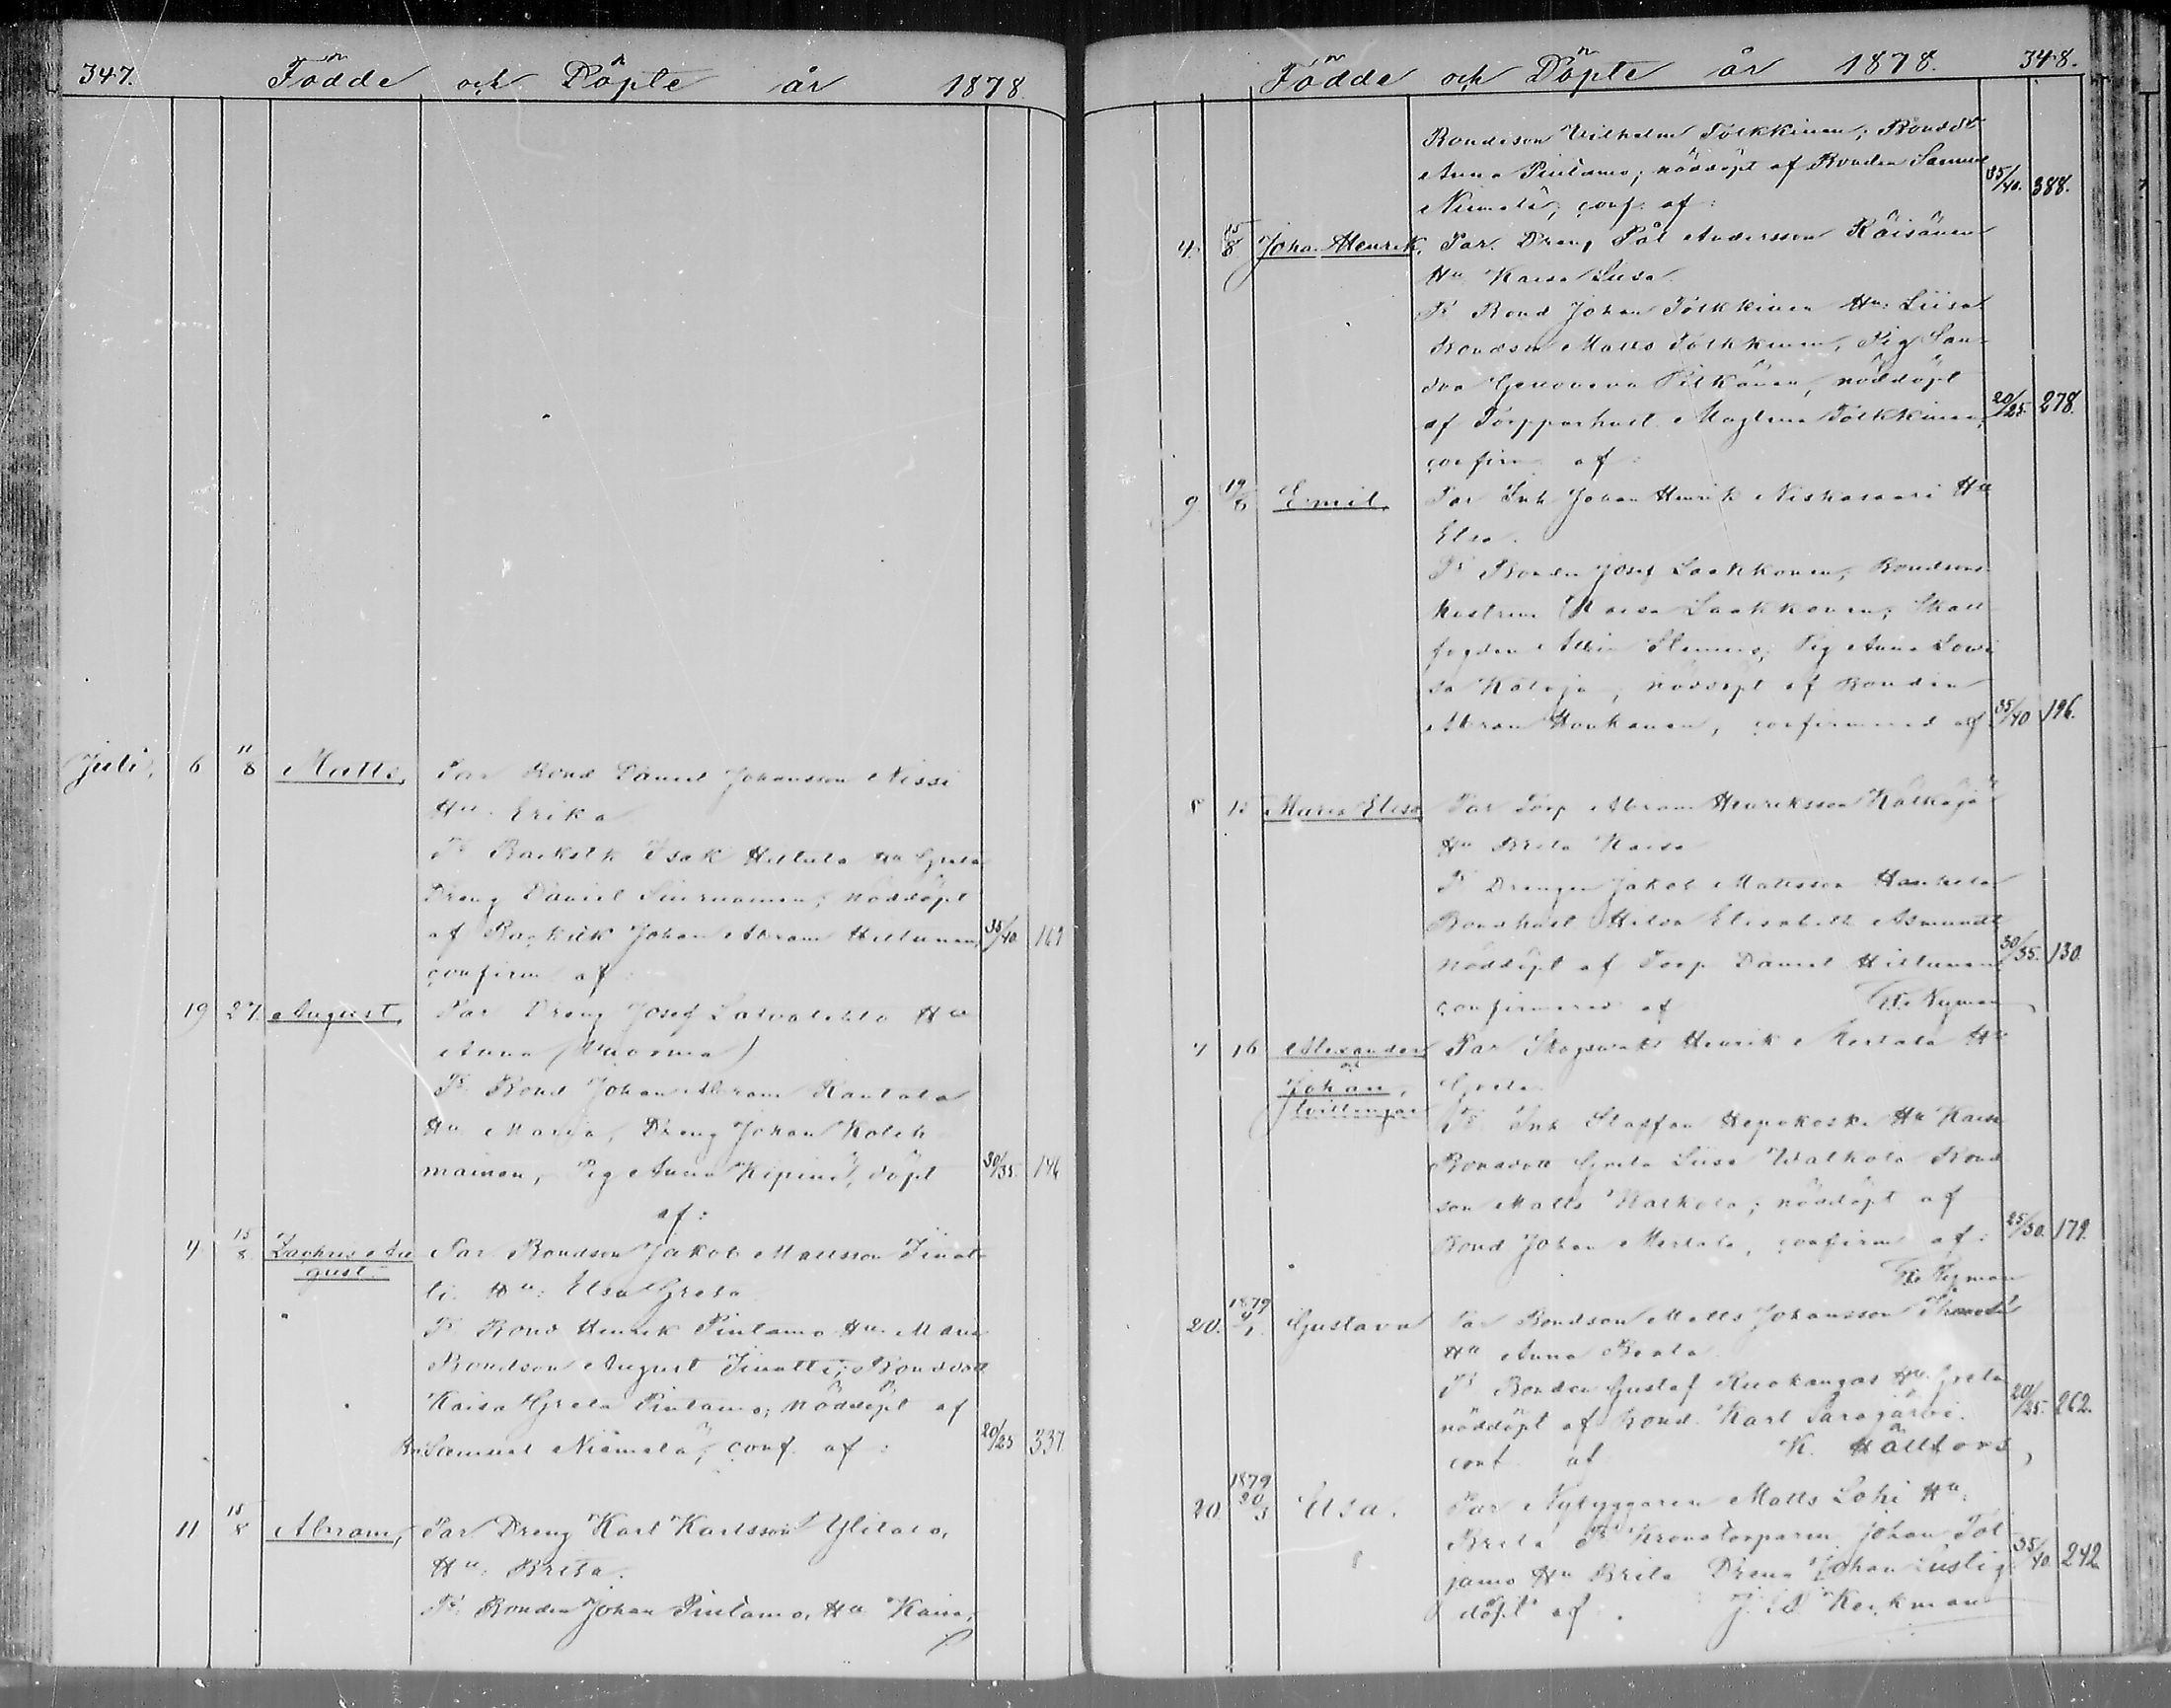 347. Födde och Döpte år 1878.
Juli, 6 11/8 Matts, Par. Bond Daniel Johansson Nissi
Hu. Erika
Fr. Backstk Isak Hiltula Hu Greta
Dreng Daniel Siurnainen; nöddöpt
af Backstk Johan Abram Hiltunen, 35/40. 169
confirm af:
19 27. August, Par Dreng Josef Latvalehto Hu
Anna (Wuorma)
Fr. Bond Johan Abram Rantala
Hu Maria, Dreng Johan Koleh-
mainen, Pig Anna Kipinä, döpt 30/35. 146
af:
4 15/8 Zachris Au- Par. Bondson Jakob Mattsson Jinat-
gust. ti. Hu: Elsa Greta
Fr. Bond Henrik Pintamo Hu. Maria
Bondson August Jinatti; Bonddott
Kaisa Greta Pintamo; nöddöpt af
Bn Samuel Niemelä; conf. af: 20/25 337.
11 18/8 Abram, Par Dreng Karl Karlsson Ylitalo,
Hu: Brita.
Fr. Bonden Johan Pintamo, Hu Kaisa,
Födde och Döpte år 1878. 348.
Bondeson Vilhelm Tolkkinen; Bondd:r
Anna Pintamo; nöddöpt af Bonden Samuel 35/40. 388.
Niemelä; conf. af:
4. 15/8 Johan Henrik, Par. Dreng Pål Andersson Räisänen
Hu Kaisa Liisa.
Fr Bond Johan Tolkkinen Hu: Liisa
Bondson Matts Tolkkinen, Pig San-
dra Genoveva Pitkänen, nöddöpt
af Torpparhust. Maglena Tolkkinen, 20/25. 278.
confirm af:
9 19/8 Emil, Par Inh Johan Henrik Niskasaari Hu
Elsa.
Fr Bonden Josef Laakkonen; Bondsons
hustrun Kaisa Laakkonen; Skall-
fogden Albin Stenius; Pig Anna Lowi
sa Kataja, nöddöpt af Bonden
Abram Honkanen, confirmered af 35/40 196.
8 12 Maria Elisa, Par Torp Abram Henriksson Kälkäjä
Hu Brita Kaisa
Fr Drengen Jakob Mattsson Hanhela
Bondhust Hilda Elisabeth Asmundt
nöddöpt af Torp Daniel Hiltunen 30/35. 130.
confirmered af Nyman
7 16 Alexander Par Skogsvakt Henrik Mertala Hu
och
Johan, Greta
tvillingar Fr Inh Staffan Hepokoski Hu Kaisa
Bonddott Greta Liisa Walkola Bond
son Matts Walkola; nöddöpt af
Bond Johan Mertala, confirm af: 25/30. 179.
Nyman
20. 1879 4/1. Gustava Par Bondson Matts Johansson
Hu Anna Beata
Fr Bonden Gustaf Ruokangas Hu. Greta
nöddöpt af Bond. Karl Sarajärvi. 20/25. 262.
conf af K. Hällfors,
20. 1879 30/3 Elsa. Par Nybyggaren Matts Lohi Hu:
Brita Fr Kronotorparen Johan Pol
jamo Hu Brita Dreng Johan Lustig 35/40. 242
döpt af. Keckman